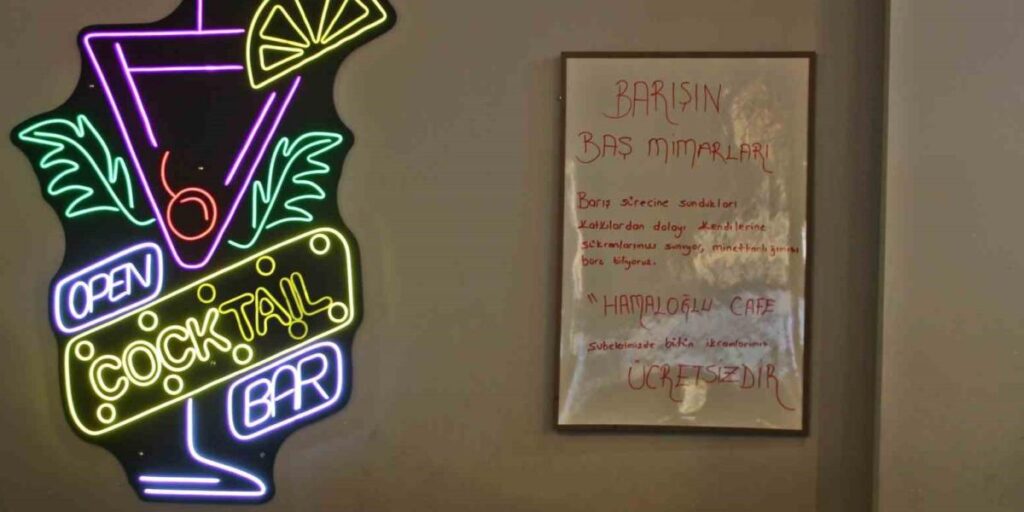 OPEN
COCKTAIL
BAR
BARIŞIN
BAŞ MİMARLARI
Barış sürecine sundukları
katkılardan dolayı kendilerine
şükranlarımızı sunuyor, minettarlığımızı
borç biliyoruz.
"HAMALOĞLU CAFE
şubelerimizde bütün ikramlarımız
ÜCRETSİZDİR